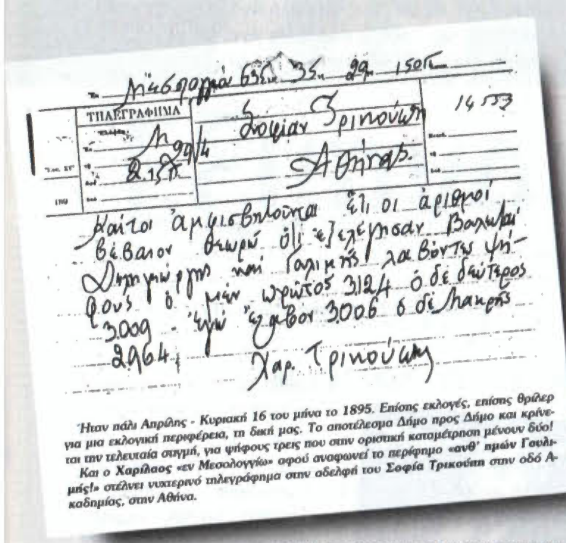 Μεσολόγγιον 635 35 29 150π
ΤΗΛΕΓΡΑΦΗΜΑ
Σοφίαν Τρικούπη
14553
29/4
Αθήνας.
Καίτοι ἀμφισβητοῦνται ἔτι οἱ ἀριθμοί
βέβαιον θεωρῶ ὅτι ἐξελέγησαν Βαλτινός
Δηληγιώργης καί Γουλιμής λαβόντες ψή-
φους ὁ μέν πρῶτος 3124 ὁ δέ δεύτερος
3.009 - ἐγώ ἔλαβον 3.006 ὁ δέ Μακρής
2964,
Χαρ. Τρικούπης
Ήταν πάλι Απρίλης - Κυριακή 16 του μήνα το 1895. Επίσης εκλογές, επίσης θρίλερ
για μια εκλογική περιφέρεια, τη δική μας. Το αποτέλεσμα Δήμο προς Δήμο και κρίνε-
ται την τελευταία στιγμή, για ψήφους τρεις που στην οριστική καταμέτρηση μένουν δύο!
Και ο Χαρίλαος «εν Μεσολογγίω» αφού αναφωνεί το περίφημο «ανθ' ημών Γουλι-
μής!» στέλνει νυκτερινό τηλεγράφημα στην αδελφή του Σοφία Τρικούπη στην οδό Α-
καδημίας, στην Αθήνα.